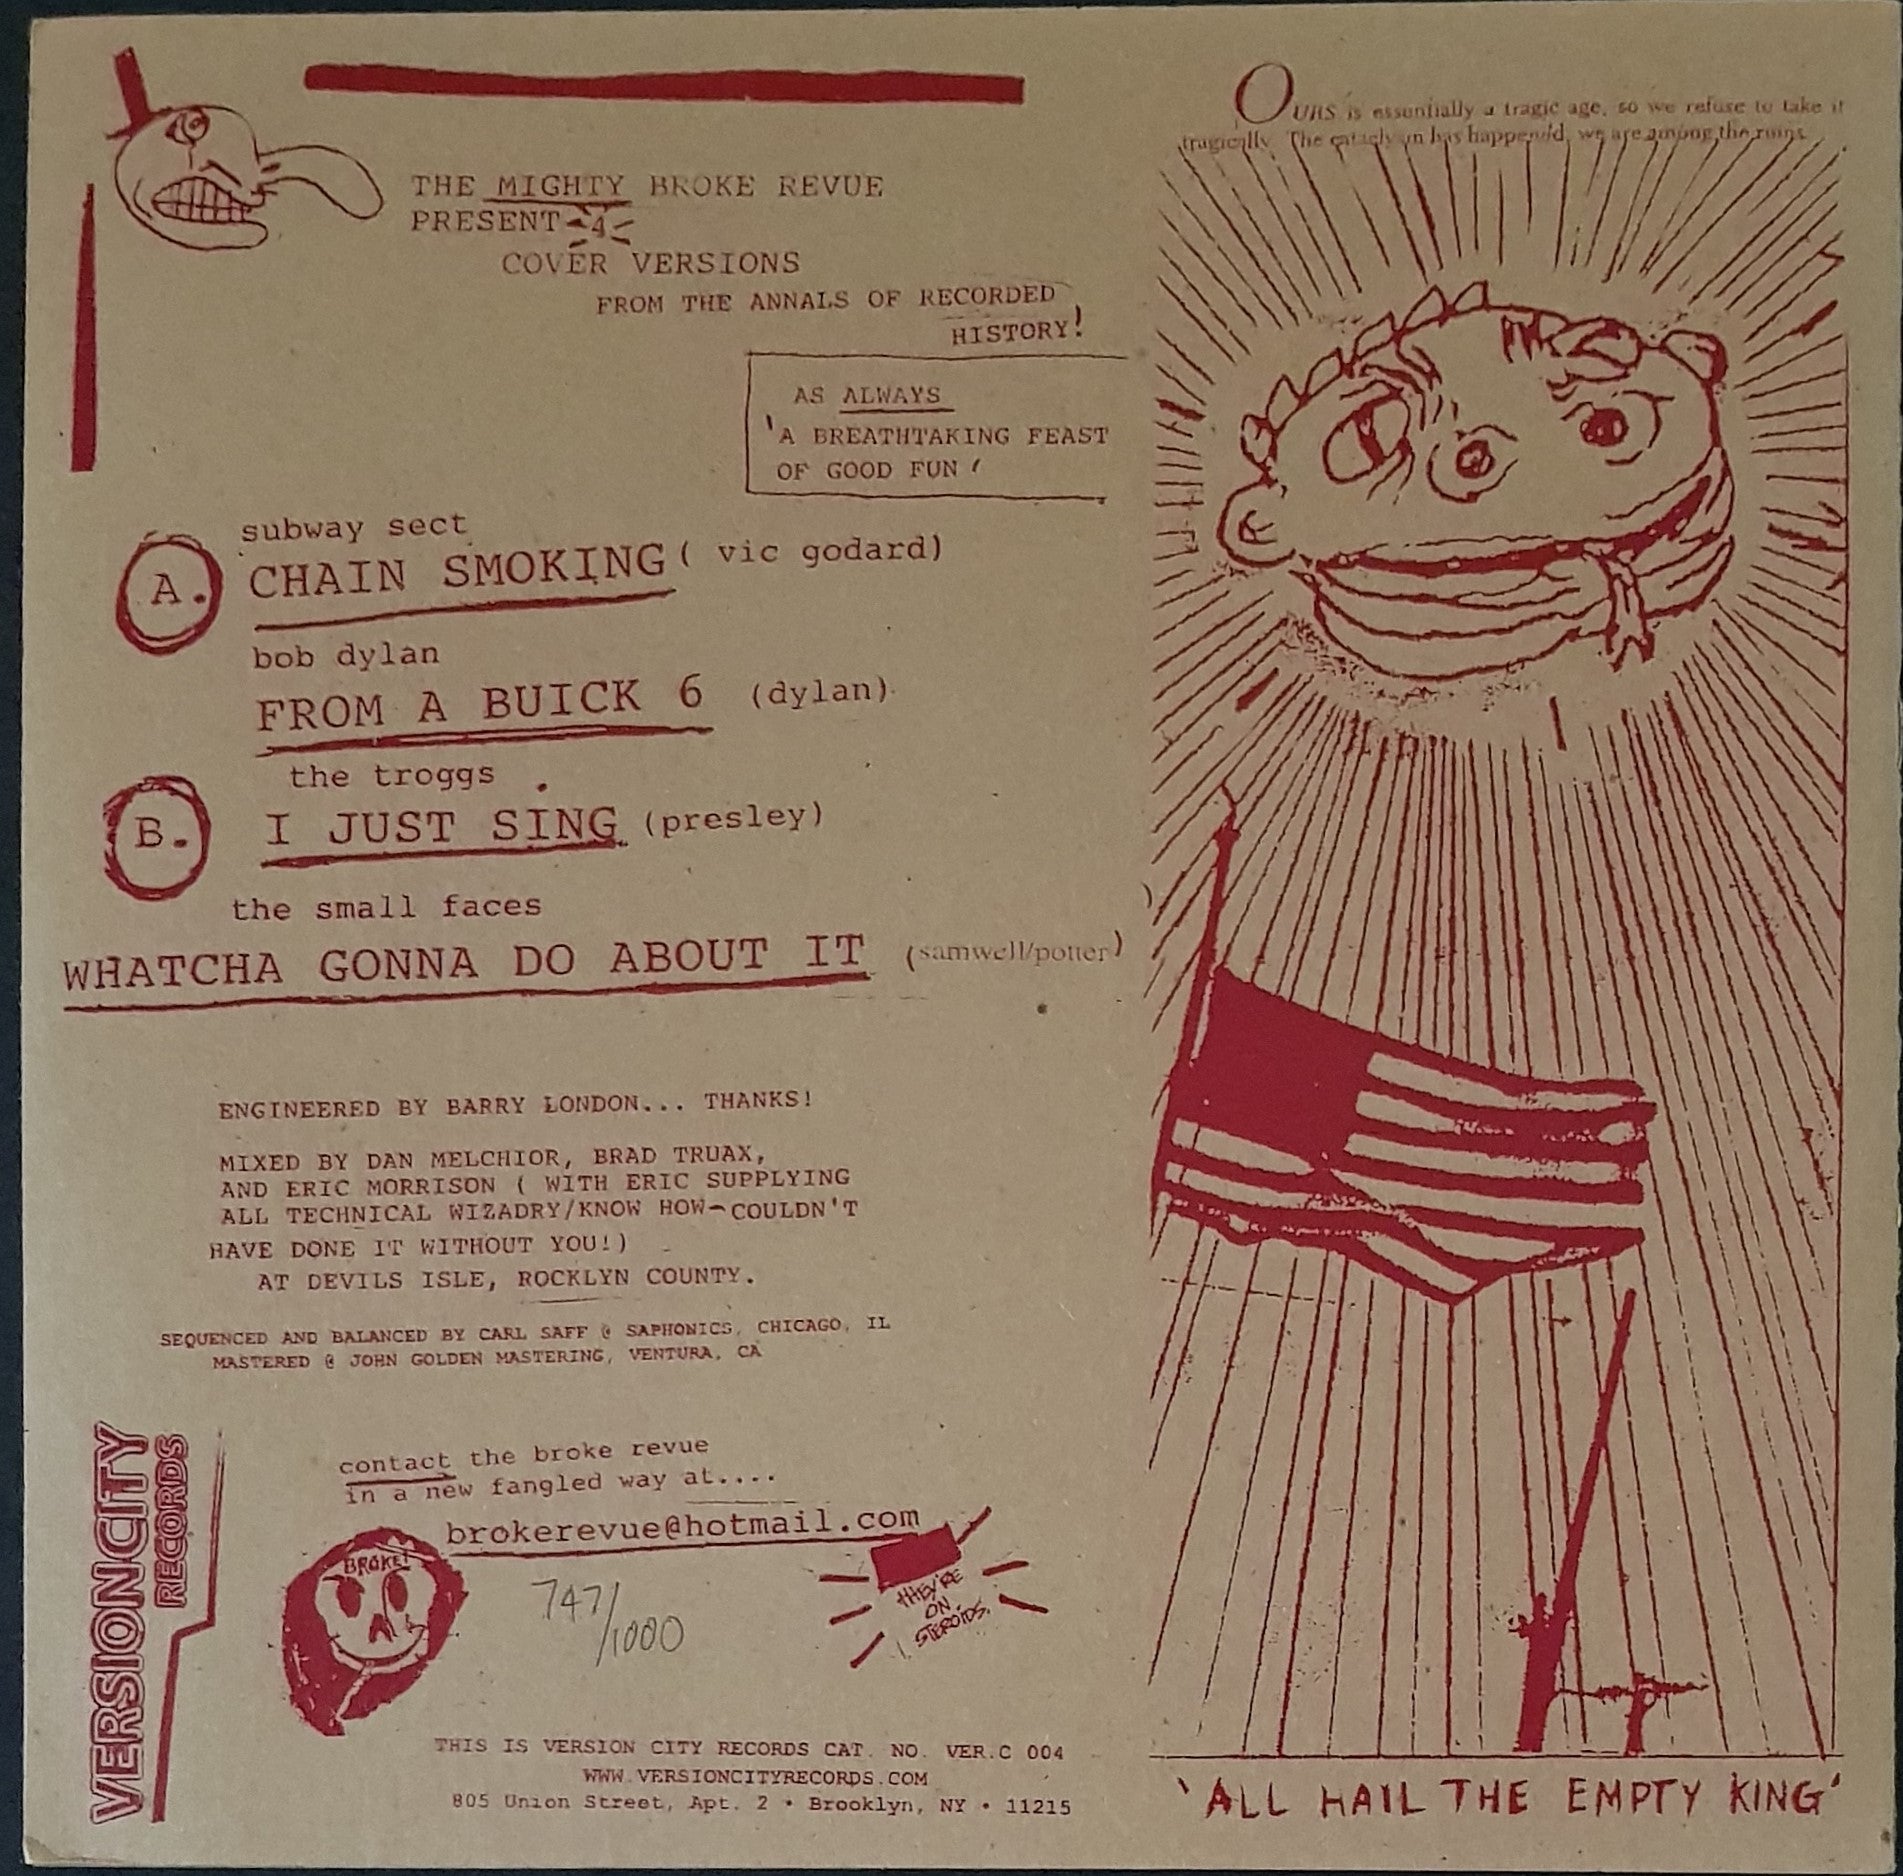 OURS is essentially a tragic age, so we refuse to take it
tragically. The cataclysm has happened, we are among the ruins
THE MIGHTY BROKE REVUE
PRESENT 4
COVER VERSIONS
FROM THE ANNALS OF RECORDED
HISTORY!
AS ALWAYS
'A BREATHTAKING FEAST
OF GOOD FUN'
subway sect
A. CHAIN SMOKING (vic godard)
bob dylan
FROM A BUICK 6 (dylan)
the troggs
B. I JUST SING (presley)
the small faces
WHATCHA GONNA DO ABOUT IT (samwell/potter)
ENGINEERED BY BARRY LONDON... THANKS!
MIXED BY DAN MELCHIOR, BRAD TRUAX,
AND ERIC MORRISON ( WITH ERIC SUPPLYING
ALL TECHNICAL WIZADRY/KNOW HOW-COULDN'T
HAVE DONE IT WITHOUT YOU!)
AT DEVILS ISLE, ROCKLYN COUNTY.
SEQUENCED AND BALANCED BY CARL SAFF @ SAPHONICS, CHICAGO, IL
MASTERED @ JOHN GOLDEN MASTERING, VENTURA, CA
VERSION CITY
RECORDS
contact the broke revue
in a new fangled way at....
brokerevue@hotmail.com
BROKE!
747/1000
THEY'RE
ON
STEROIDS.
THIS IS VERSION CITY RECORDS CAT. NO. VER.C 004
WWW.VERSIONCITYRECORDS.COM
805 Union Street, Apt. 2 • Brooklyn, NY • 11215
'ALL HAIL THE EMPTY KING'